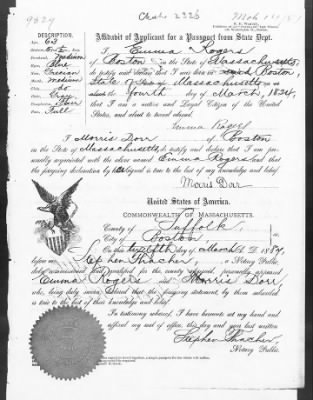 9829
DESCRIPTION.
Age, 63
Medium
Blue
Grecian
Medium
do
Gray
Fair
Full
Affidavit of Applicant for a Passport from State Dept.
I Emma Rogers
of Boston in the State of Massachusetts,
do testify and declare that I was born in said Boston,
State of Massachusetts on
about the fourth day of March, 1824,
that I am a native and Loyal Citizen of the United States,
and about to travel abroad.
Emma Rogers
I Morris Dorr of Boston
in the State of Massachusetts do testify and declare that I am per-
sonally acquainted with the above named Emma Rogers and that
the foregoing declaration by her signed is true to the best of my knowledge and belief.
Morris Dorr
United States of America.
COMMONWEALTH OF MASSACHUSETTS.
County of Suffolk,
City of Boston
On this twelfth day of March A.D. 1887,
before me Stephen Thacher, a Notary Public,
duly commissioned and qualified for the county aforesaid, personally appeared
Emma Rogers and Morris Dorr
who, being duly sworn, stated that the foregoing statement, by them subscribed
is true to the best of their knowledge and belief.
In testimony whereof, I have hereunto set my hand and
official my seal of office, this day and year last written
Stephen Thacher,
Notary Public.